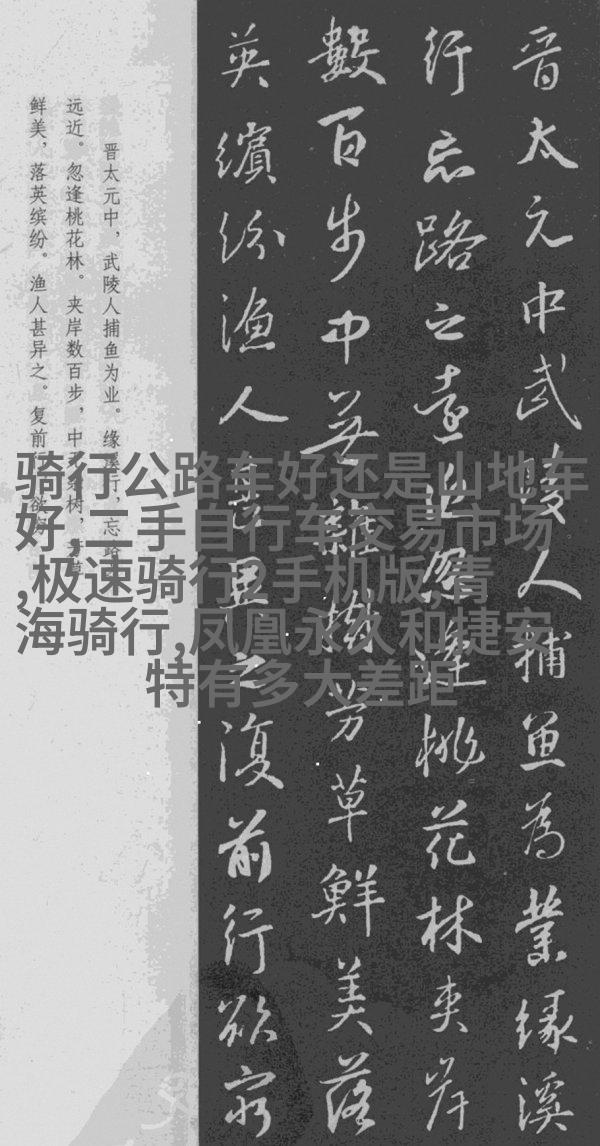 晋太元中武陵人捕魚為業緣溪
行忘路之遠近忽逢桃花林夾岸
數百步中無雜樹芳草鮮美落
英繽紛漁人甚異之復前行欲窮
晋太元中，武陵人捕鱼为业。缘溪行，忘路
远近。忽逢桃花林。夹岸数百步，中无杂树，芳草
鲜美，落英缤纷。渔人甚异之。复前行，欲穷
骑行公路车好还是山地车
好,二手自行车交易市场
,极速骑行2手机版,青
海骑行,凤凰永久和捷安
特有多大差距